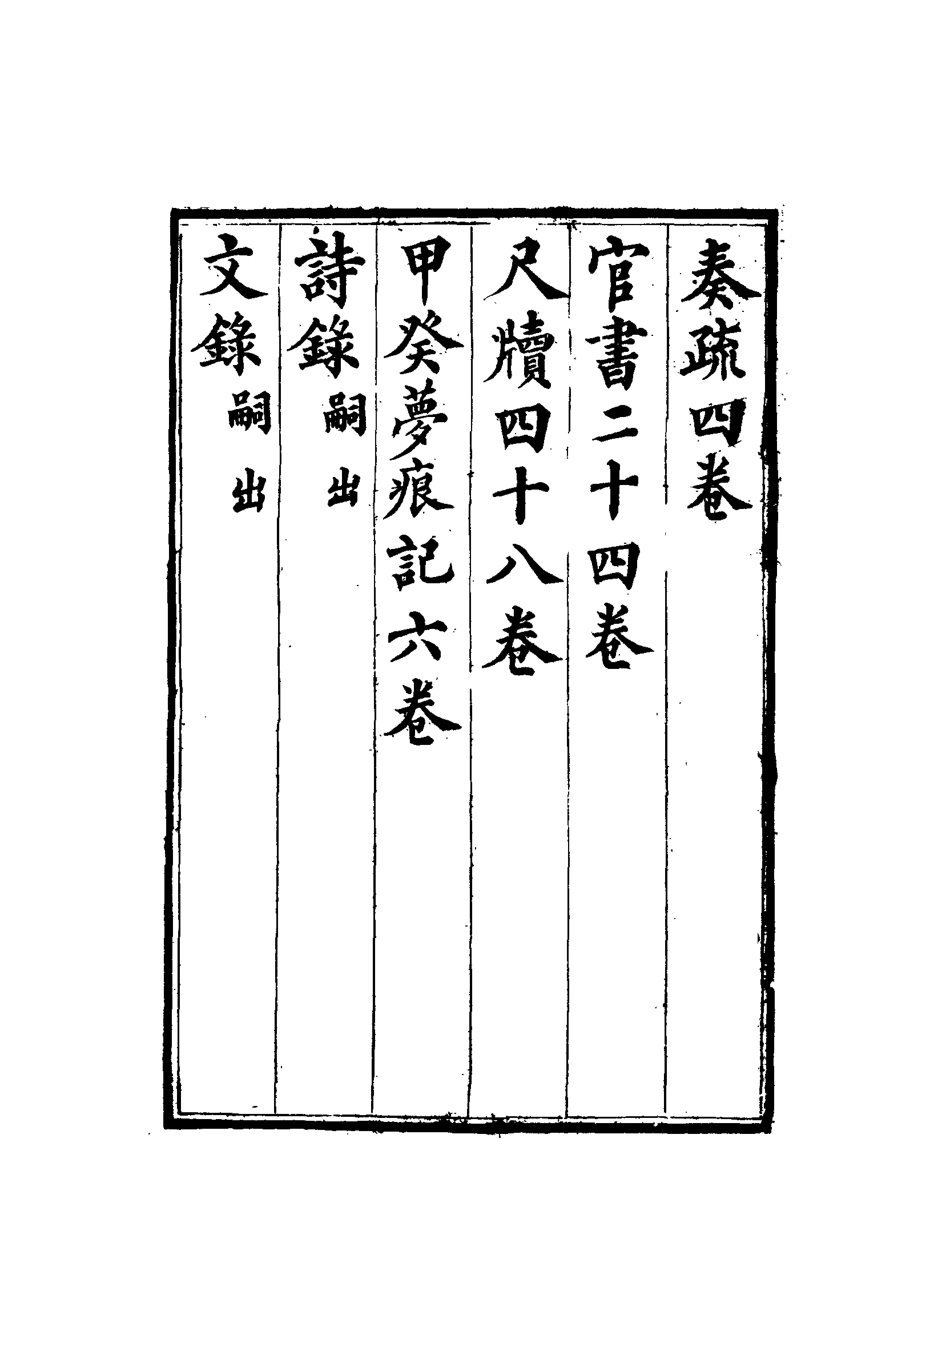 奏疏四卷
官書二十四卷
尺牘四十八卷
甲癸夢痕記六卷
詩錄嗣出
文錄嗣出